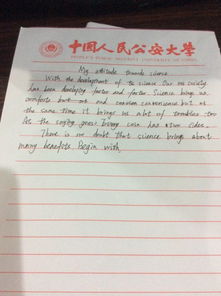 中国人民公安大学
PEOPLE'S PUBLIC SECURITY UNIVERSITY OF CHINA
My attitude towards science
With the development of the science. Our society
has been developing faster and faster. Science brings us
comforts and convenience but at
the same time it brings us a lot of troubles too
As the saying goes: Every coin has two sides.
There is no doubt that science brings about
many benefits. Begin with